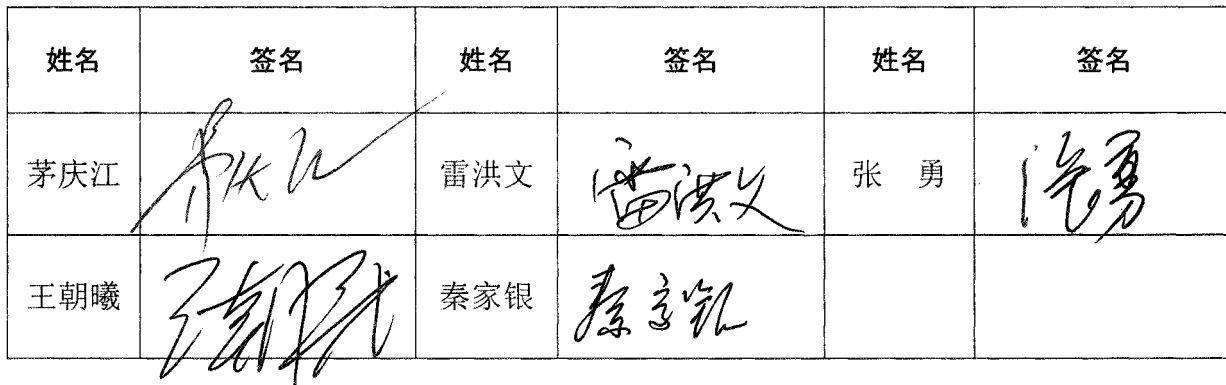 姓名 签名 姓名 签名 姓名 签名
茅庆江 茅庆江 雷洪文 雷洪文 张 勇 张勇
王朝曦 王朝曦 秦家银 秦家银